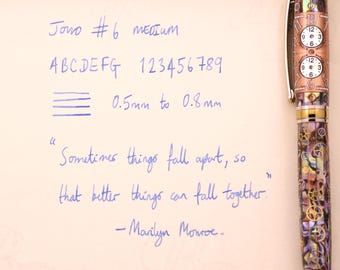 Jowo #6 MEDIUM
ABCDEFG 123456789
0.5mm to 0.8mm
"Sometimes things fall apart, so
that better things can fall together."
— Marilyn Monroe.